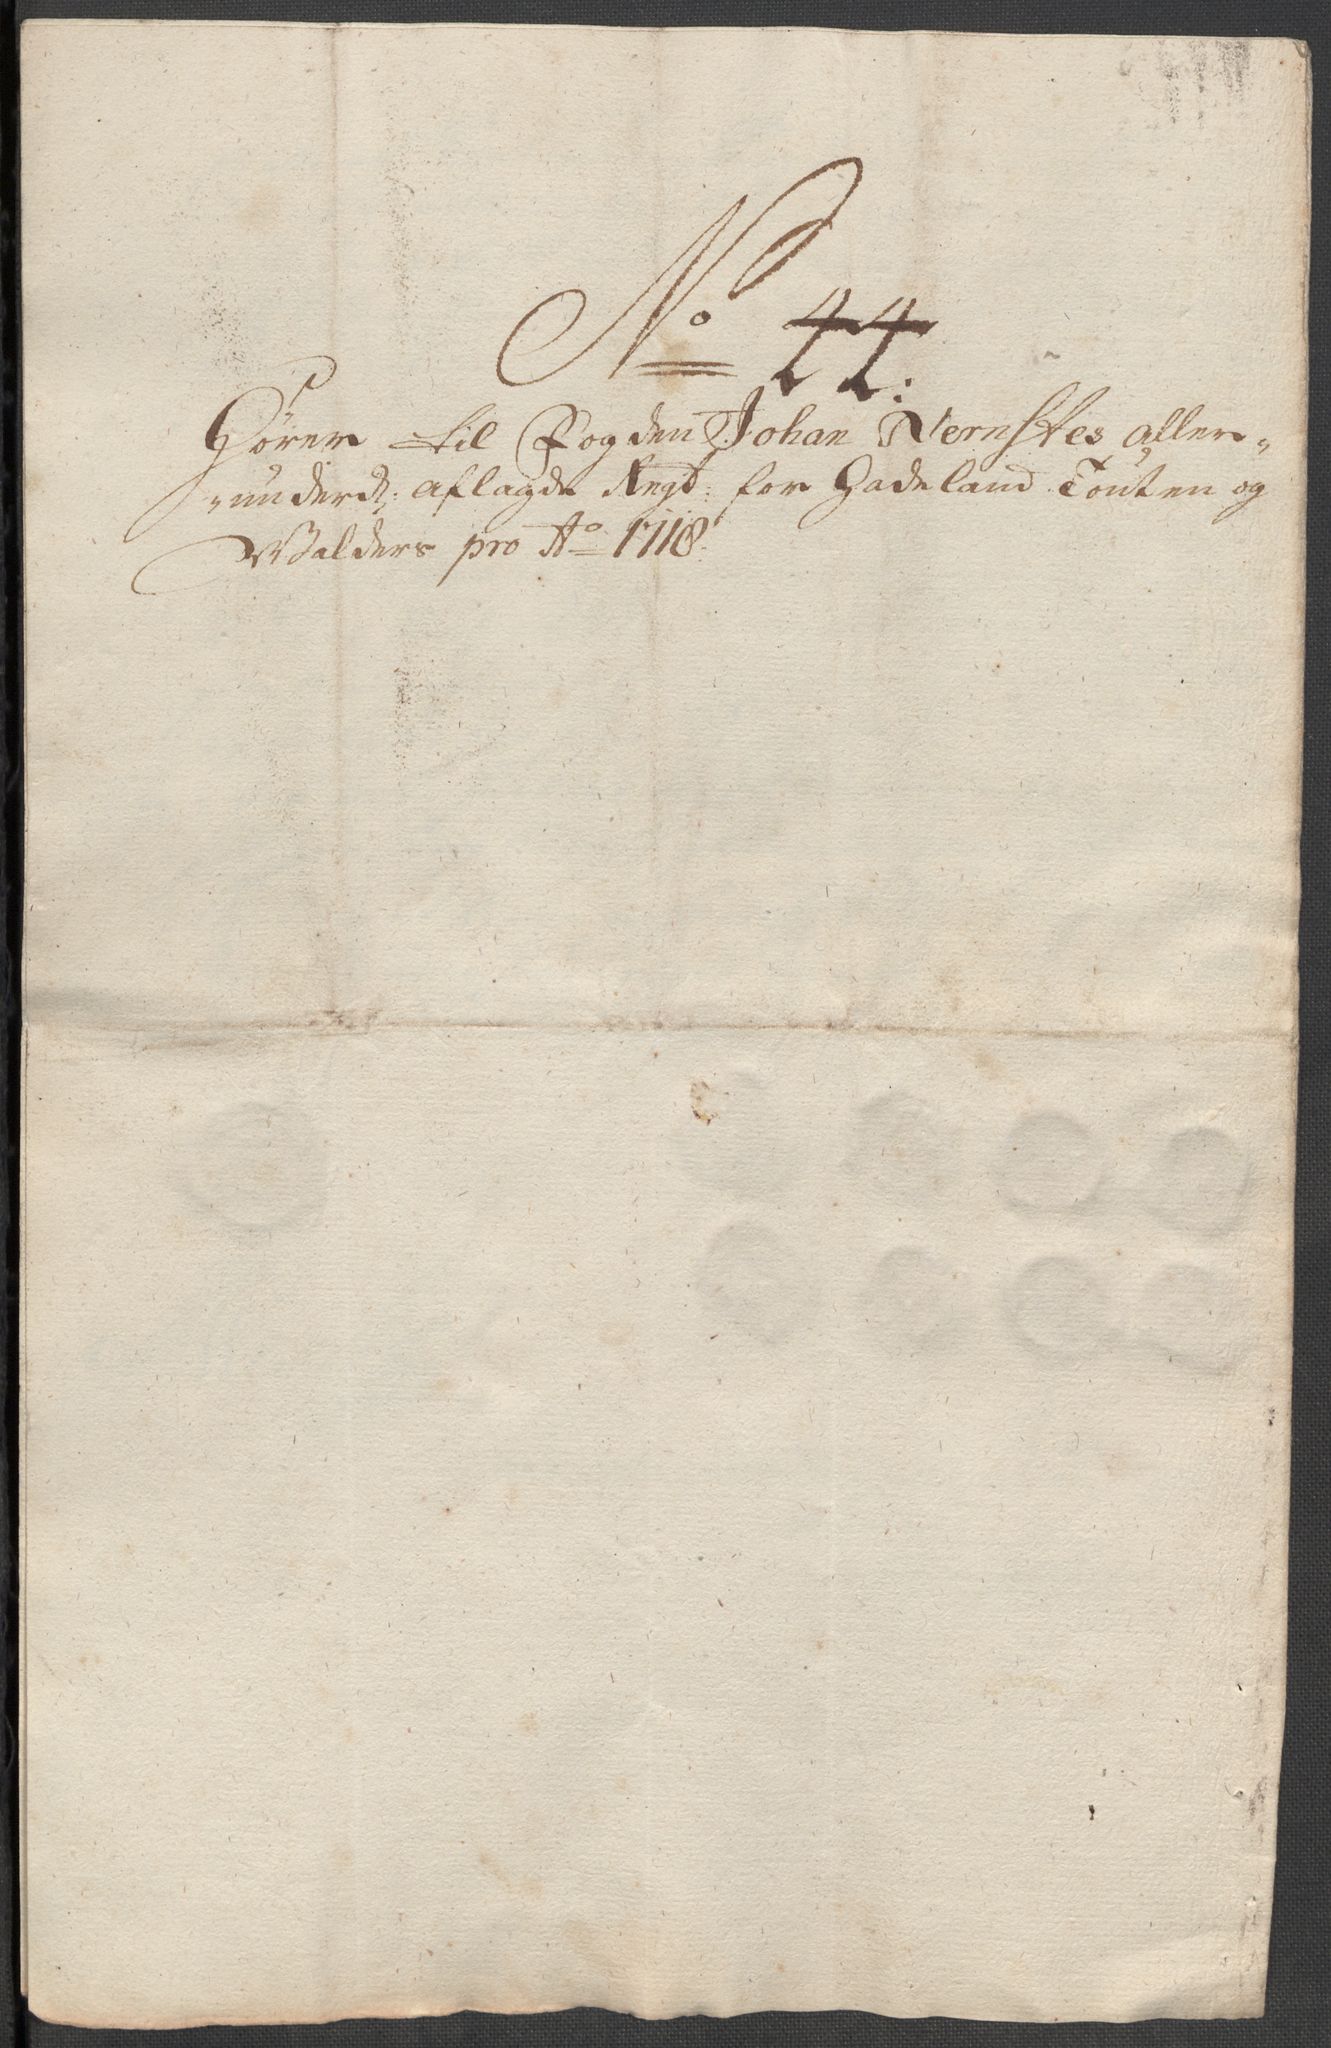 No 44:
Hörer til Fogden Johan Vernstes aller-
underd: aflagde Regt: for Hadeland Touten og
Walders pro Ao 1718